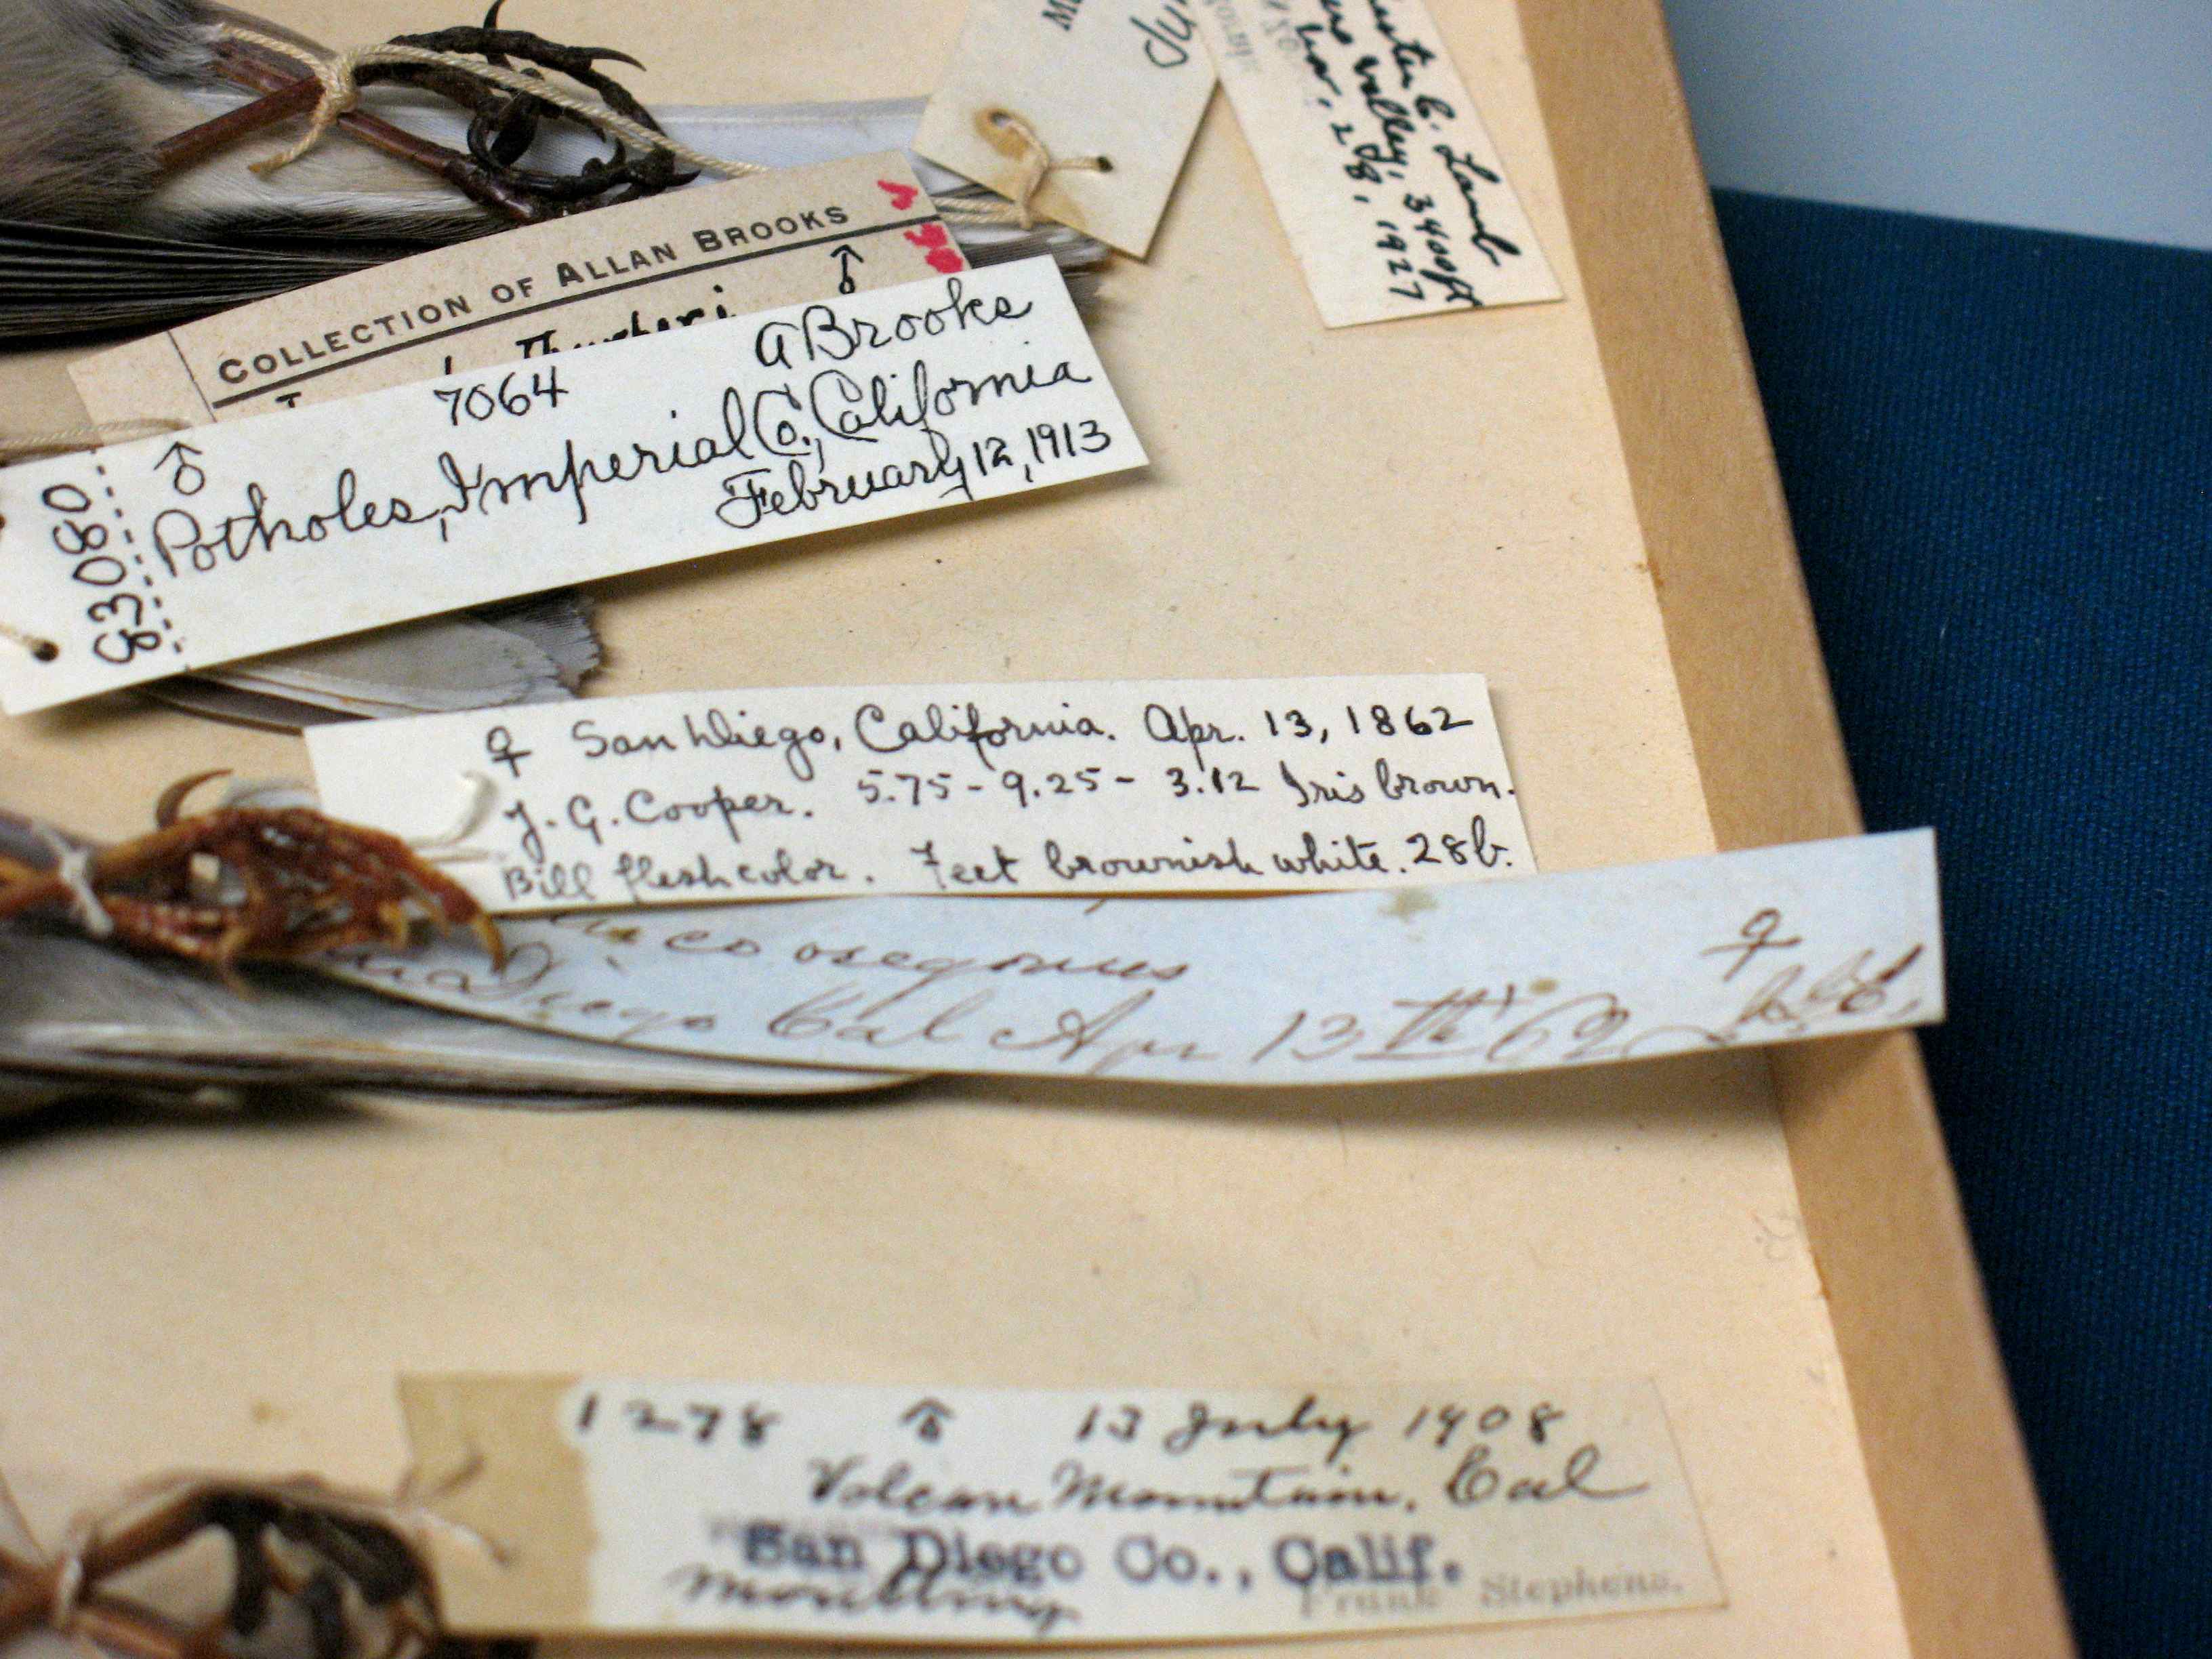 C. Lamb
valley, 3400ft
28, 1927
COLLECTION OF ALLAN BROOKS
♂
7064 A Brooks
♂ Potholes, Imperial Co., California
February 12, 1913
83080
♀ San Diego, California. Apr. 13, 1862
J. G. Cooper. 5.75 - 9.25 - 3.12 Iris brown.
Bill flesh color. Feet brownish white. 28b.
co oregonus ♀
Diego Cal Apr 13th 62
1278 ♂ 13 July 1908
Volcan Mountain, Cal
San Diego Co., Calif.
moulting Frank Stephens.